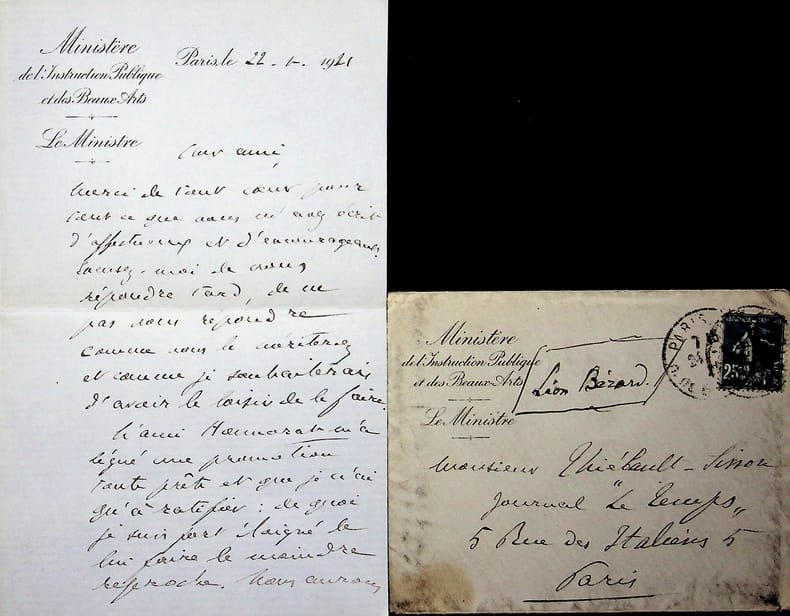 Ministère
de l'Instruction Publique
et des Beaux Arts
Le Ministre
Paris, le 22 - 1 - 1921
Cher ami
merci de tout cœur pour
tout ce que vous m'avez écrit
d'affectueux et d'encourageant.
Excusez-moi de vous
répondre tard, de ne
pas vous répondre
comme vous le méritez
et comme je souhaiterais
d'avoir le loisir de le faire.
L'ami Honnorat m'a
légué une promotion
toute prête et que je n'ai
qu'à ratifier : de quoi
je suis fort éloigné de
lui faire le moindre
reproche. Nous aurons
Ministère
de l'Instruction Publique
et des Beaux Arts
Le Ministre
Léon Bérard.
PARIS
25
Monsieur Thiébault-Sisson
Journal "Le Temps"
5 Rue des Italiens 5
Paris